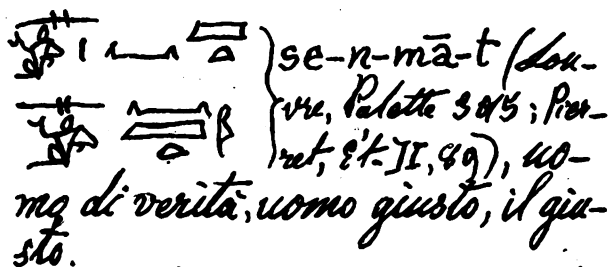 se-n-mā-t (Lou-
vre, Palette 3015; Pier-
ret, Ét. II, 89), uo-
mo di verità, uomo giusto, il giu-
sto.